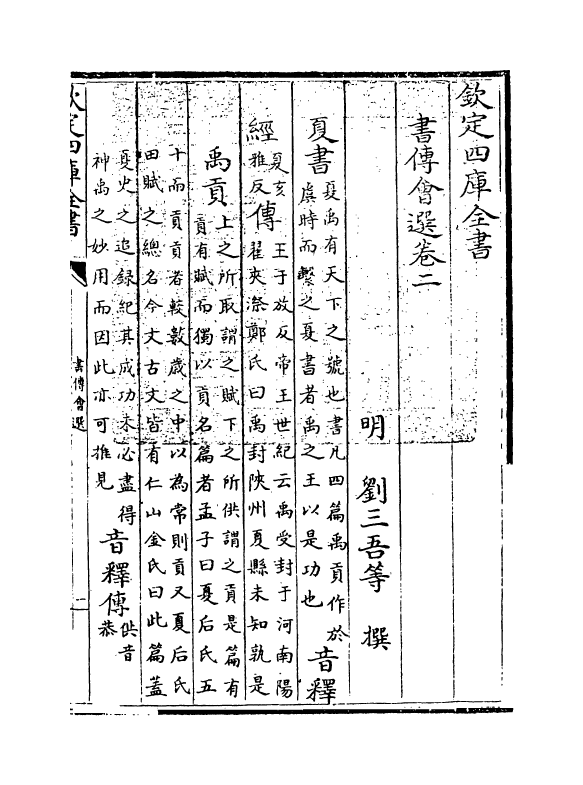 欽定四庫全書
書傳會選卷二
明 劉三吾等 撰
夏書
夏禹有天下之號也書凡四篇禹貢作於
虞時而繫之夏書者禹之王以是功也
音釋
經
夏亥
雅反
傳
王于放反帝王世紀云禹受封于河南陽
翟夾漈鄭氏曰禹封陜州夏縣未知孰是
禹貢
上之所取謂之賦下之所供謂之貢是篇有
貢有賦而獨以貢名篇者孟子曰夏后氏五
十而貢貢者較數歲之中以為常則貢又夏后氏
田賦之總名今文古文皆有仁山金氏曰此篇蓋
夏史之追録紀其成功未必盡得
神禹之妙用而因此亦可推見
音釋傳
供音
恭
欽定四庫全書
書傳會選
一